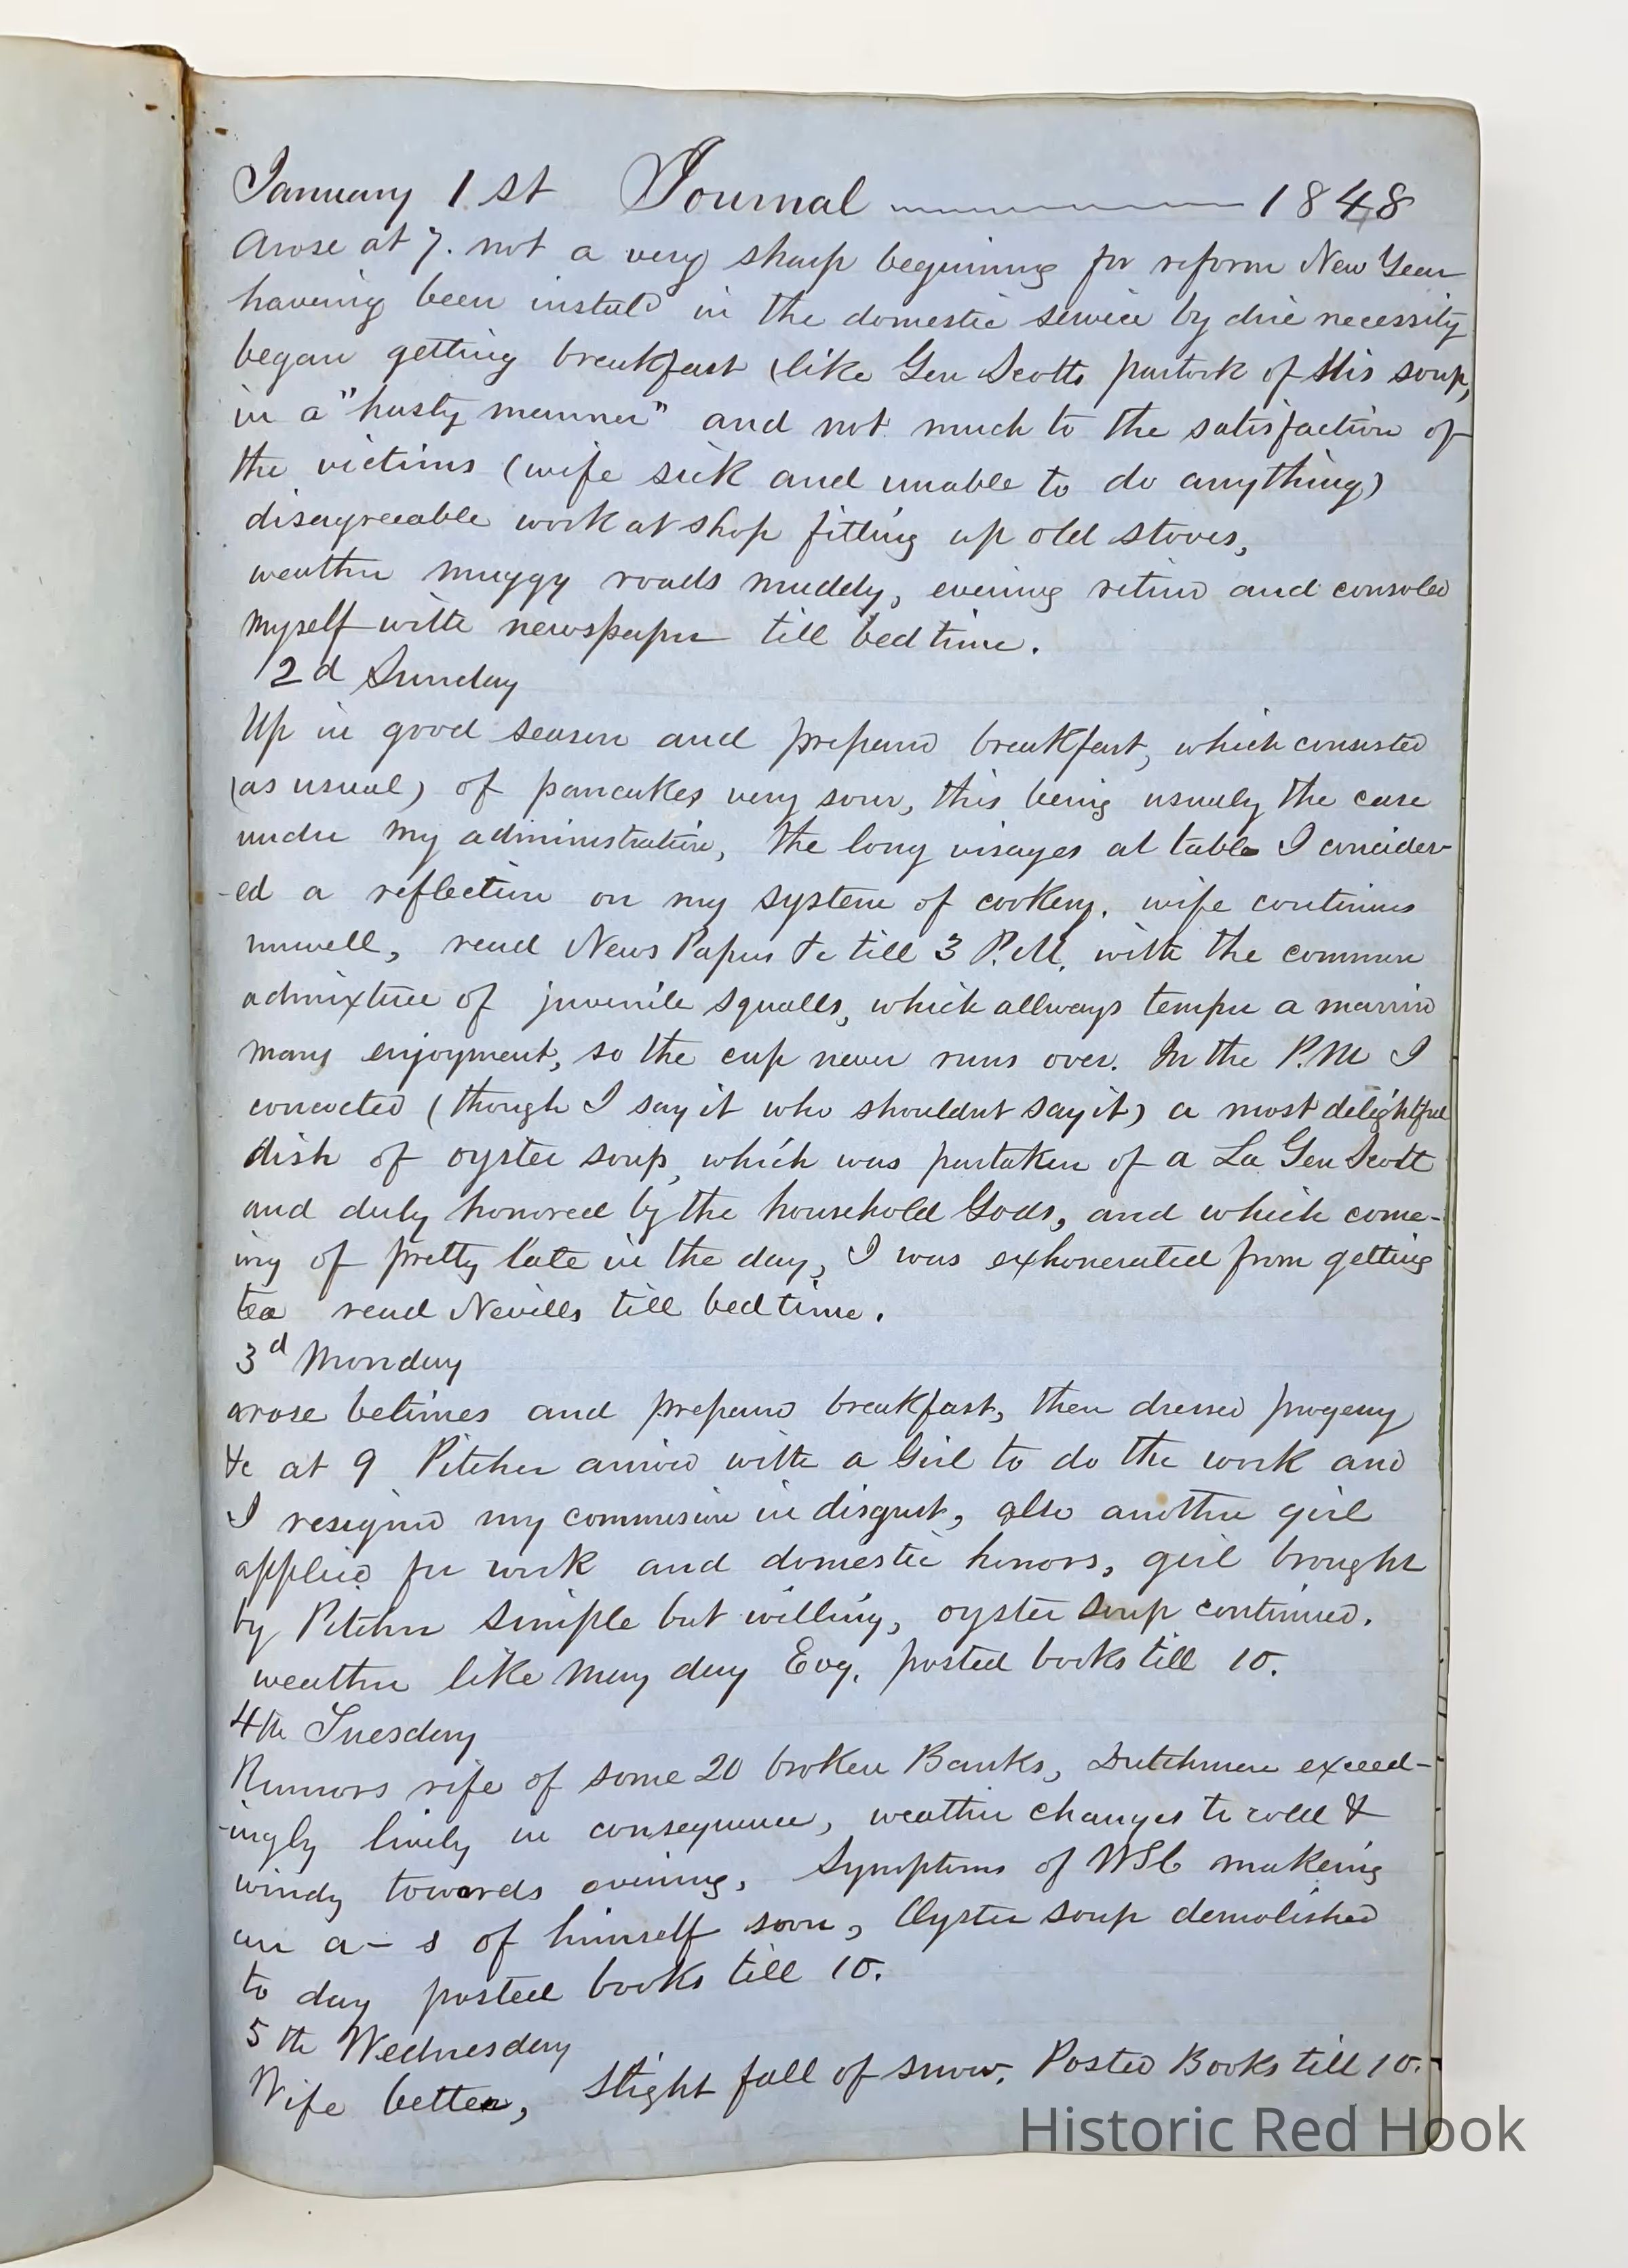 January 1st Journal 1848
Arose at 7. not a very sharp begining for reform New Year
haveing been instald in the domestic service by dire necessity
began getting breakfast (like Gen Scotts partook of this soup,
in a "hasty manner" and not much to the satisfaction of
the victims (wife sick and unable to do anything)
disagreeable work at shop fitting up old stoves,
weather muggy roads muddy, evening retired and consoled
myself with newspaper till bed time.
2d Sunday
Up in good season and prepared breakfast, which consisted
(as usual) of pancakes very sour, this being usualy the case
under my administration, the long visages at table I concider-
-ed a reflection on my system of cookery. wife continues
unwell, read News Papers &c till 3 P.M. with the common
admixture of juvenile squalls, which allways temper a married
mans enjoyment, so the cup never runs over. In the P.M I
concocted (though I say it who shouldnt say it) a most delightful
dish of oyster soup, which was partaken of a La Gen Scott
and duly honored by the household Gods, and which come-
ing of pretty late in the day, I was exhonerated from getting
tea read Nevills till bed time.
3d Monday
arose betimes and prepared breakfast, then dressed progeny
&c at 9 Pitcher arrived with a Girl to do the work and
I resigned my commision in disgust, also another girl
applied for work and domestic honors, girl brought
by Pitcher simple but willing, oyster soup continued.
weather like May day Evg. posted books till 10.
4th Tuesday
Rumors rife of some 20 broken Banks, Dutchmen exceed-
-ingly lively in consequence, weather changes to cold &
windy towards evening, Symptoms of WSC makeing
an a- s of himself soon, Oyster soup demolished
to day posted books till 10.
5th Wednesday
Wife better, Slight fall of snow. Posted Books till 10.
Historic Red Hook